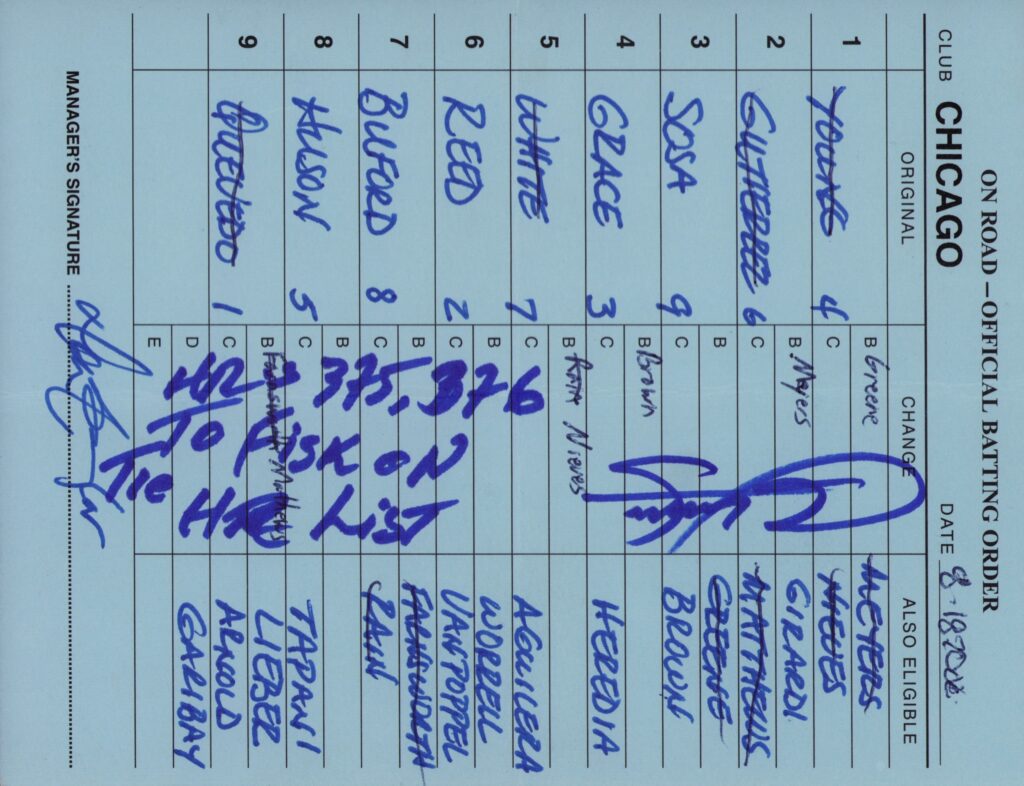 ON ROAD – OFFICIAL BATTING ORDER
CLUB CHICAGO DATE 8-18-2000
ORIGINAL CHANGE ALSO ELIGIBLE
1 YOUNG 4 B Greene MEYERS
C NIEVES
2 GUTIERREZ 6 B Meyers GIRARDI
C MATTHEWS
3 SOSA 9 B GREENE
C BROWN
4 GRACE 3 B Brown
C HEREDIA
5 WHITE 7 B Rain Nieves
C AGUILERA
6 REED 2 B WORRELL
C VANPOPPEL
7 BUFORD 8 B FARNSWORTH
C RAIN
8 HUSON 5 B
C TAPANI
9 QUEVEDO 1 B Farnsworth Matthews LIEBER
C ARNOLD
D GARIBAY
E
MANAGER'S SIGNATURE
HR's 375, 376
To Fisk on
Tie HR List